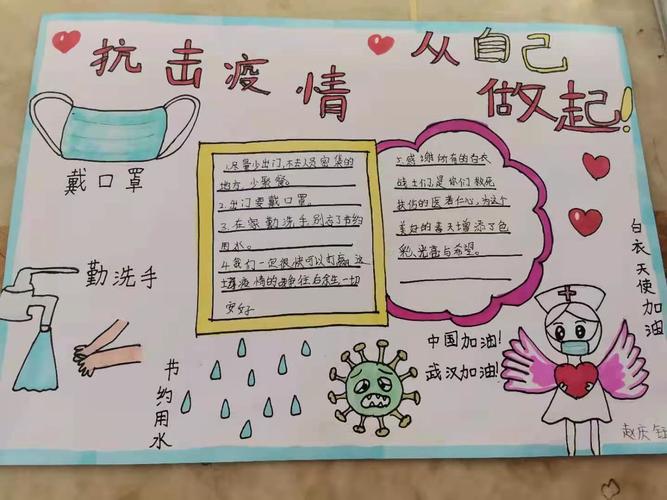 抗击疫情
从自己
做起!
戴口罩
1.尽量少出门,不去人员密集的
地方,少聚餐。
2.出门要戴口罩。
3.在家勤洗手别忘了节约
用水。
4.我们一定很快可以打赢这
情的
往后余生,一切
安好
感谢所有的白衣
战士们,是你们救死
扶伤的医者仁心,为这个
美好的春天增添了色
彩,光音与希望。
勤洗手
节约用水
中国加油!
武汉加油!
白衣天使加油
赵庆